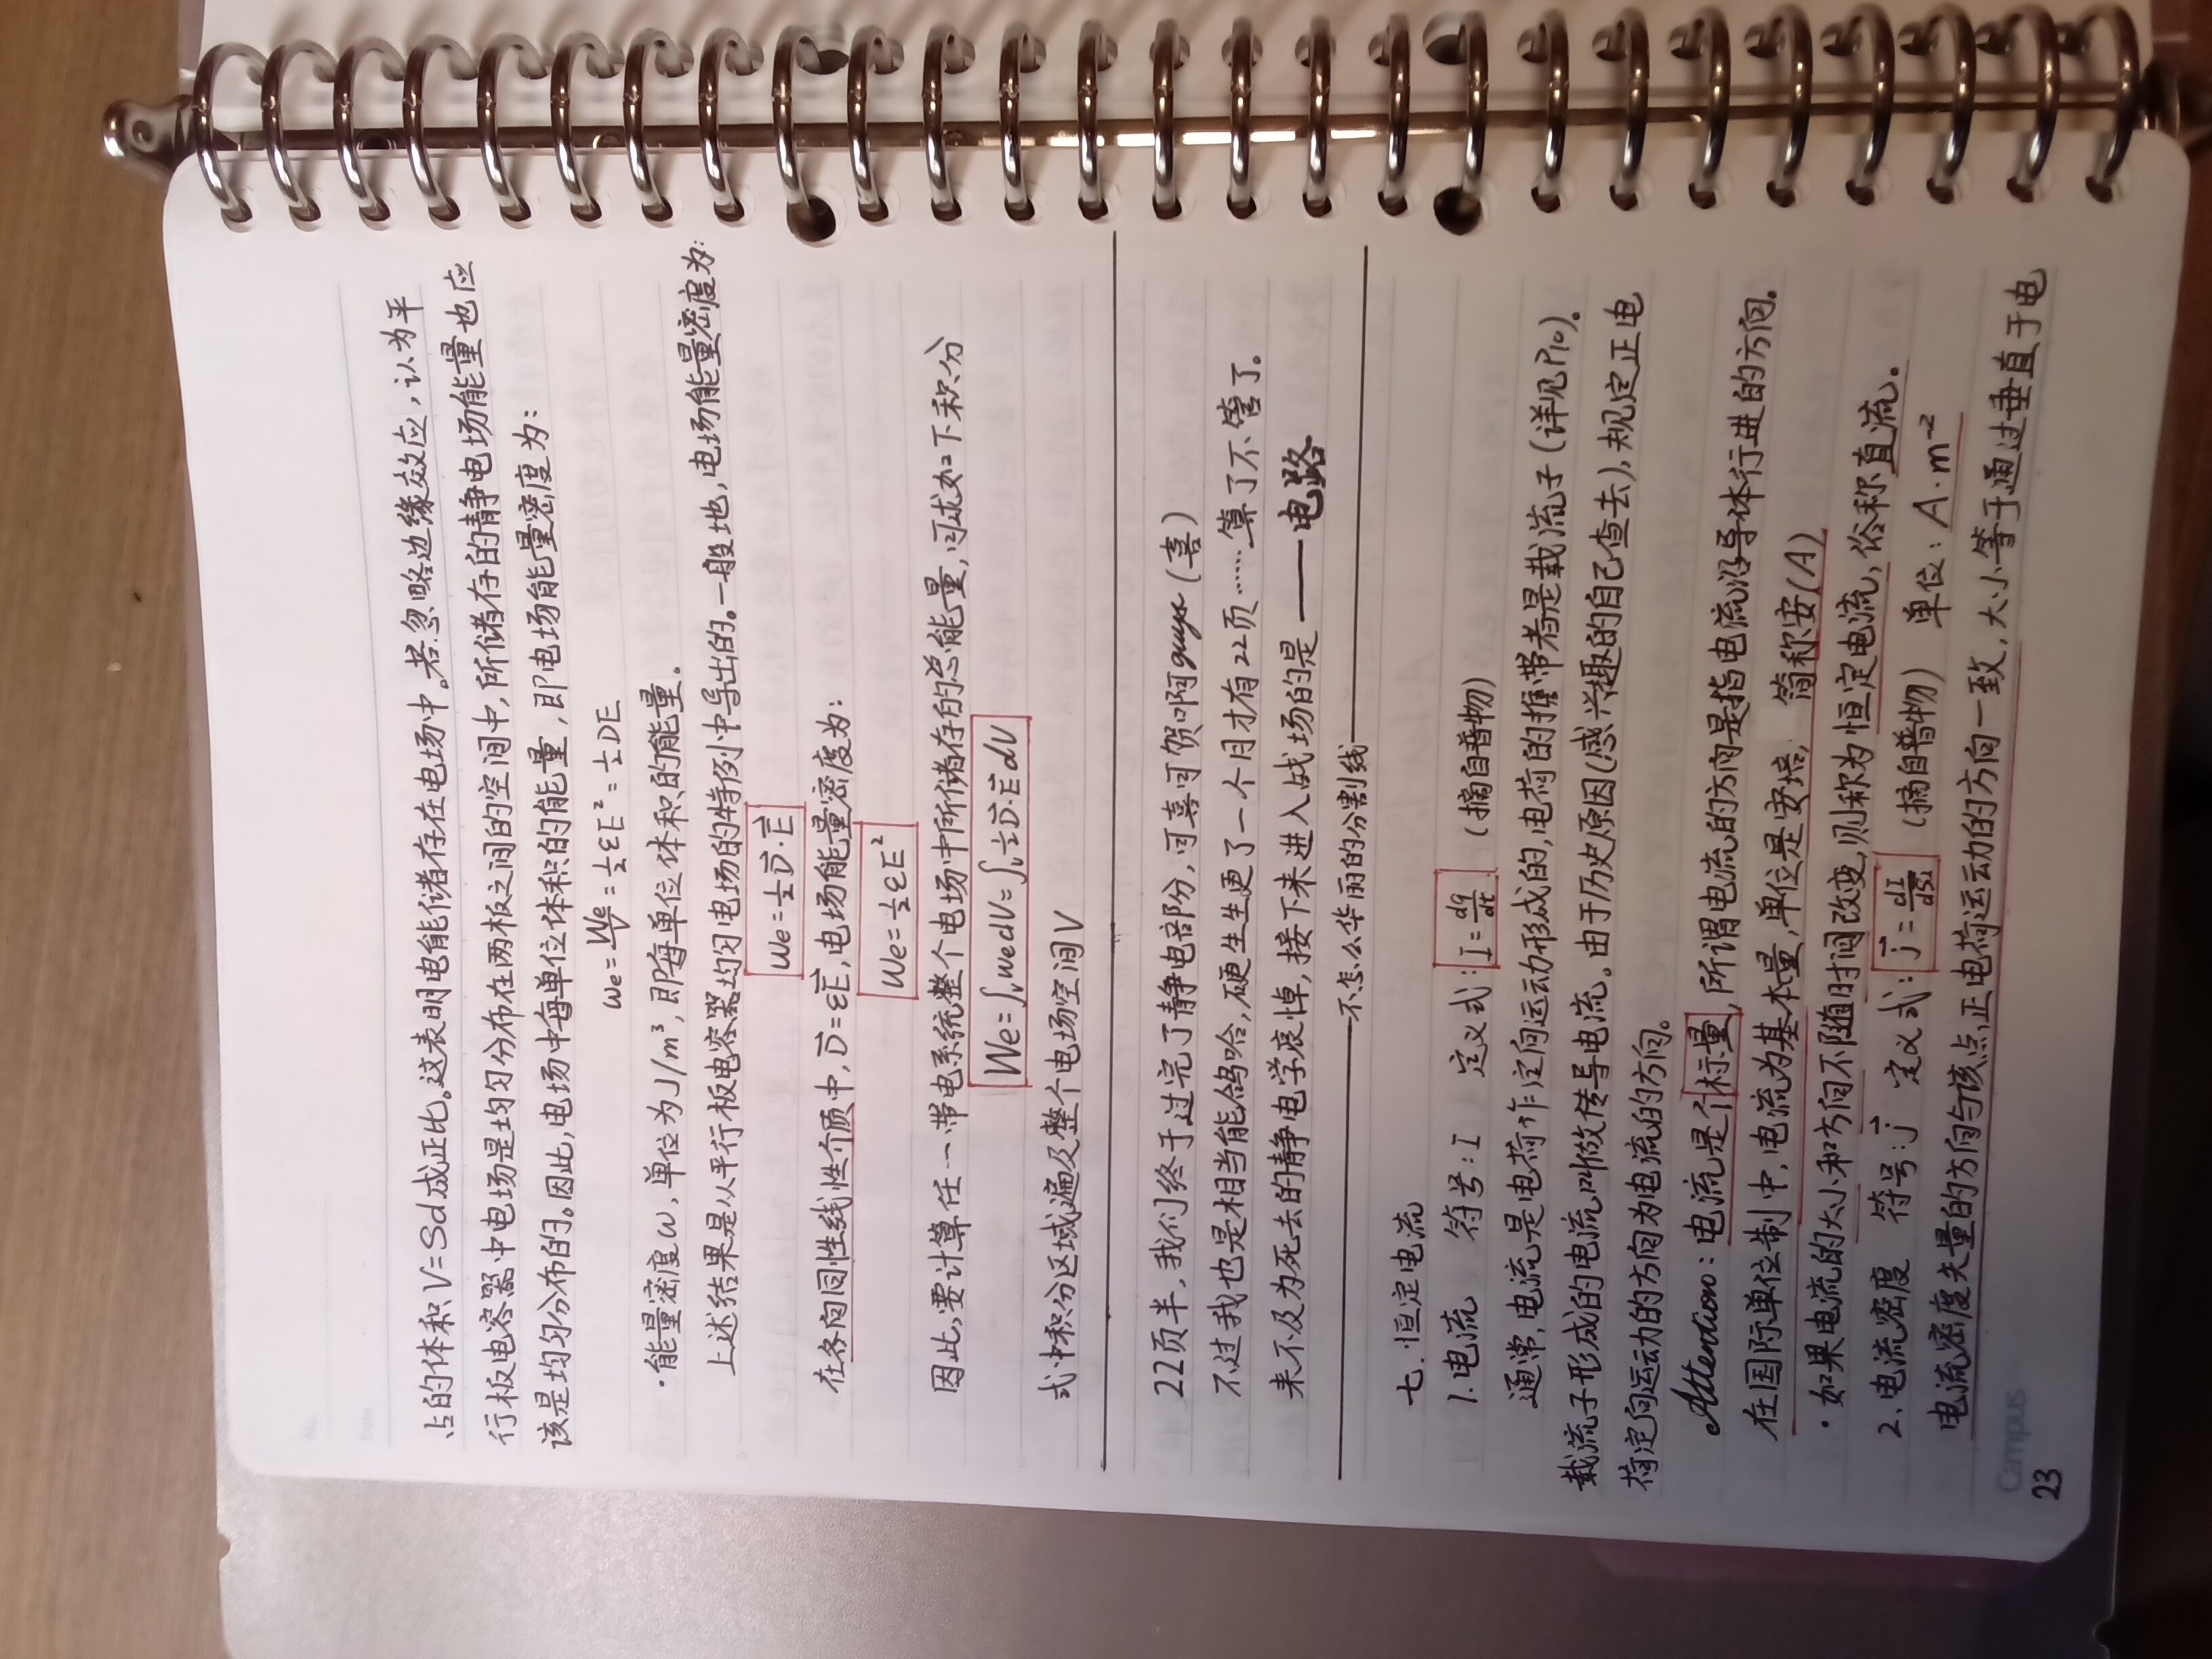 No.
Date
占的体积V=Sd成正比。这表明电能储存在电场中。若忽略边缘效应,认为平
行板电容器中电场是均匀分布在两板之间的空间中,所储存的静电场能量也应
该是均匀分布的。因此,电场中每单位体积的能量,即电场能量密度为:
we=We/V=½εE²=½DE
·能量密度w,单位为J/m³,即每单位体积的能量。
上述结果是从平行板电容器均匀电场的特例中导出的。一般地,电场能量密度为:
we=½D⃗·E⃗
在各向同性线性介质中,D⃗=εE⃗,电场能量密度为:
We=½εE²
因此,要计算任一带电系统整个电场中所储存的总能量,可求如下积分
We=∫ᵥwedV=∫ᵥ½D⃗·E⃗dV
式中积分区域遍及整个电场空间V
22页半,我们终于过完了静电部份,可喜可贺啊guys(喜)
不过我也是相当能鸽哈,硬生生更了一个月才有22页……算了不管了。
来不及为死去的静电学哀悼,接下来进入战场的是——电路
不怎么华丽的分割线
七.恒定电流
1.电流 符号:I 定义式:I=dq/dt (摘自普物)
通常,电流是电荷作定向运动形成的,电荷的携带者是载流子(详见P10)。
载流子形成的电流叫做传导电流。由于历史原因(感兴趣的自己查去),规定正电
荷定向运动的方向为电流的方向。
Attention:电流是个标量,所谓电流的方向是指电流沿导体行进的方向。
在国际单位制中,电流为基本量,单位是安培,简称安(A)
·如果电流的大小和方向不随时间改变,则称为恒定电流,俗称直流。
2.电流密度 符号:j⃗ 定义式:j⃗=dI/dS⊥ (摘自普物) 单位:A·m⁻²
电流密度矢量的方向与该点正电荷运动的方向一致,大小等于通过垂直于电
Campus
23